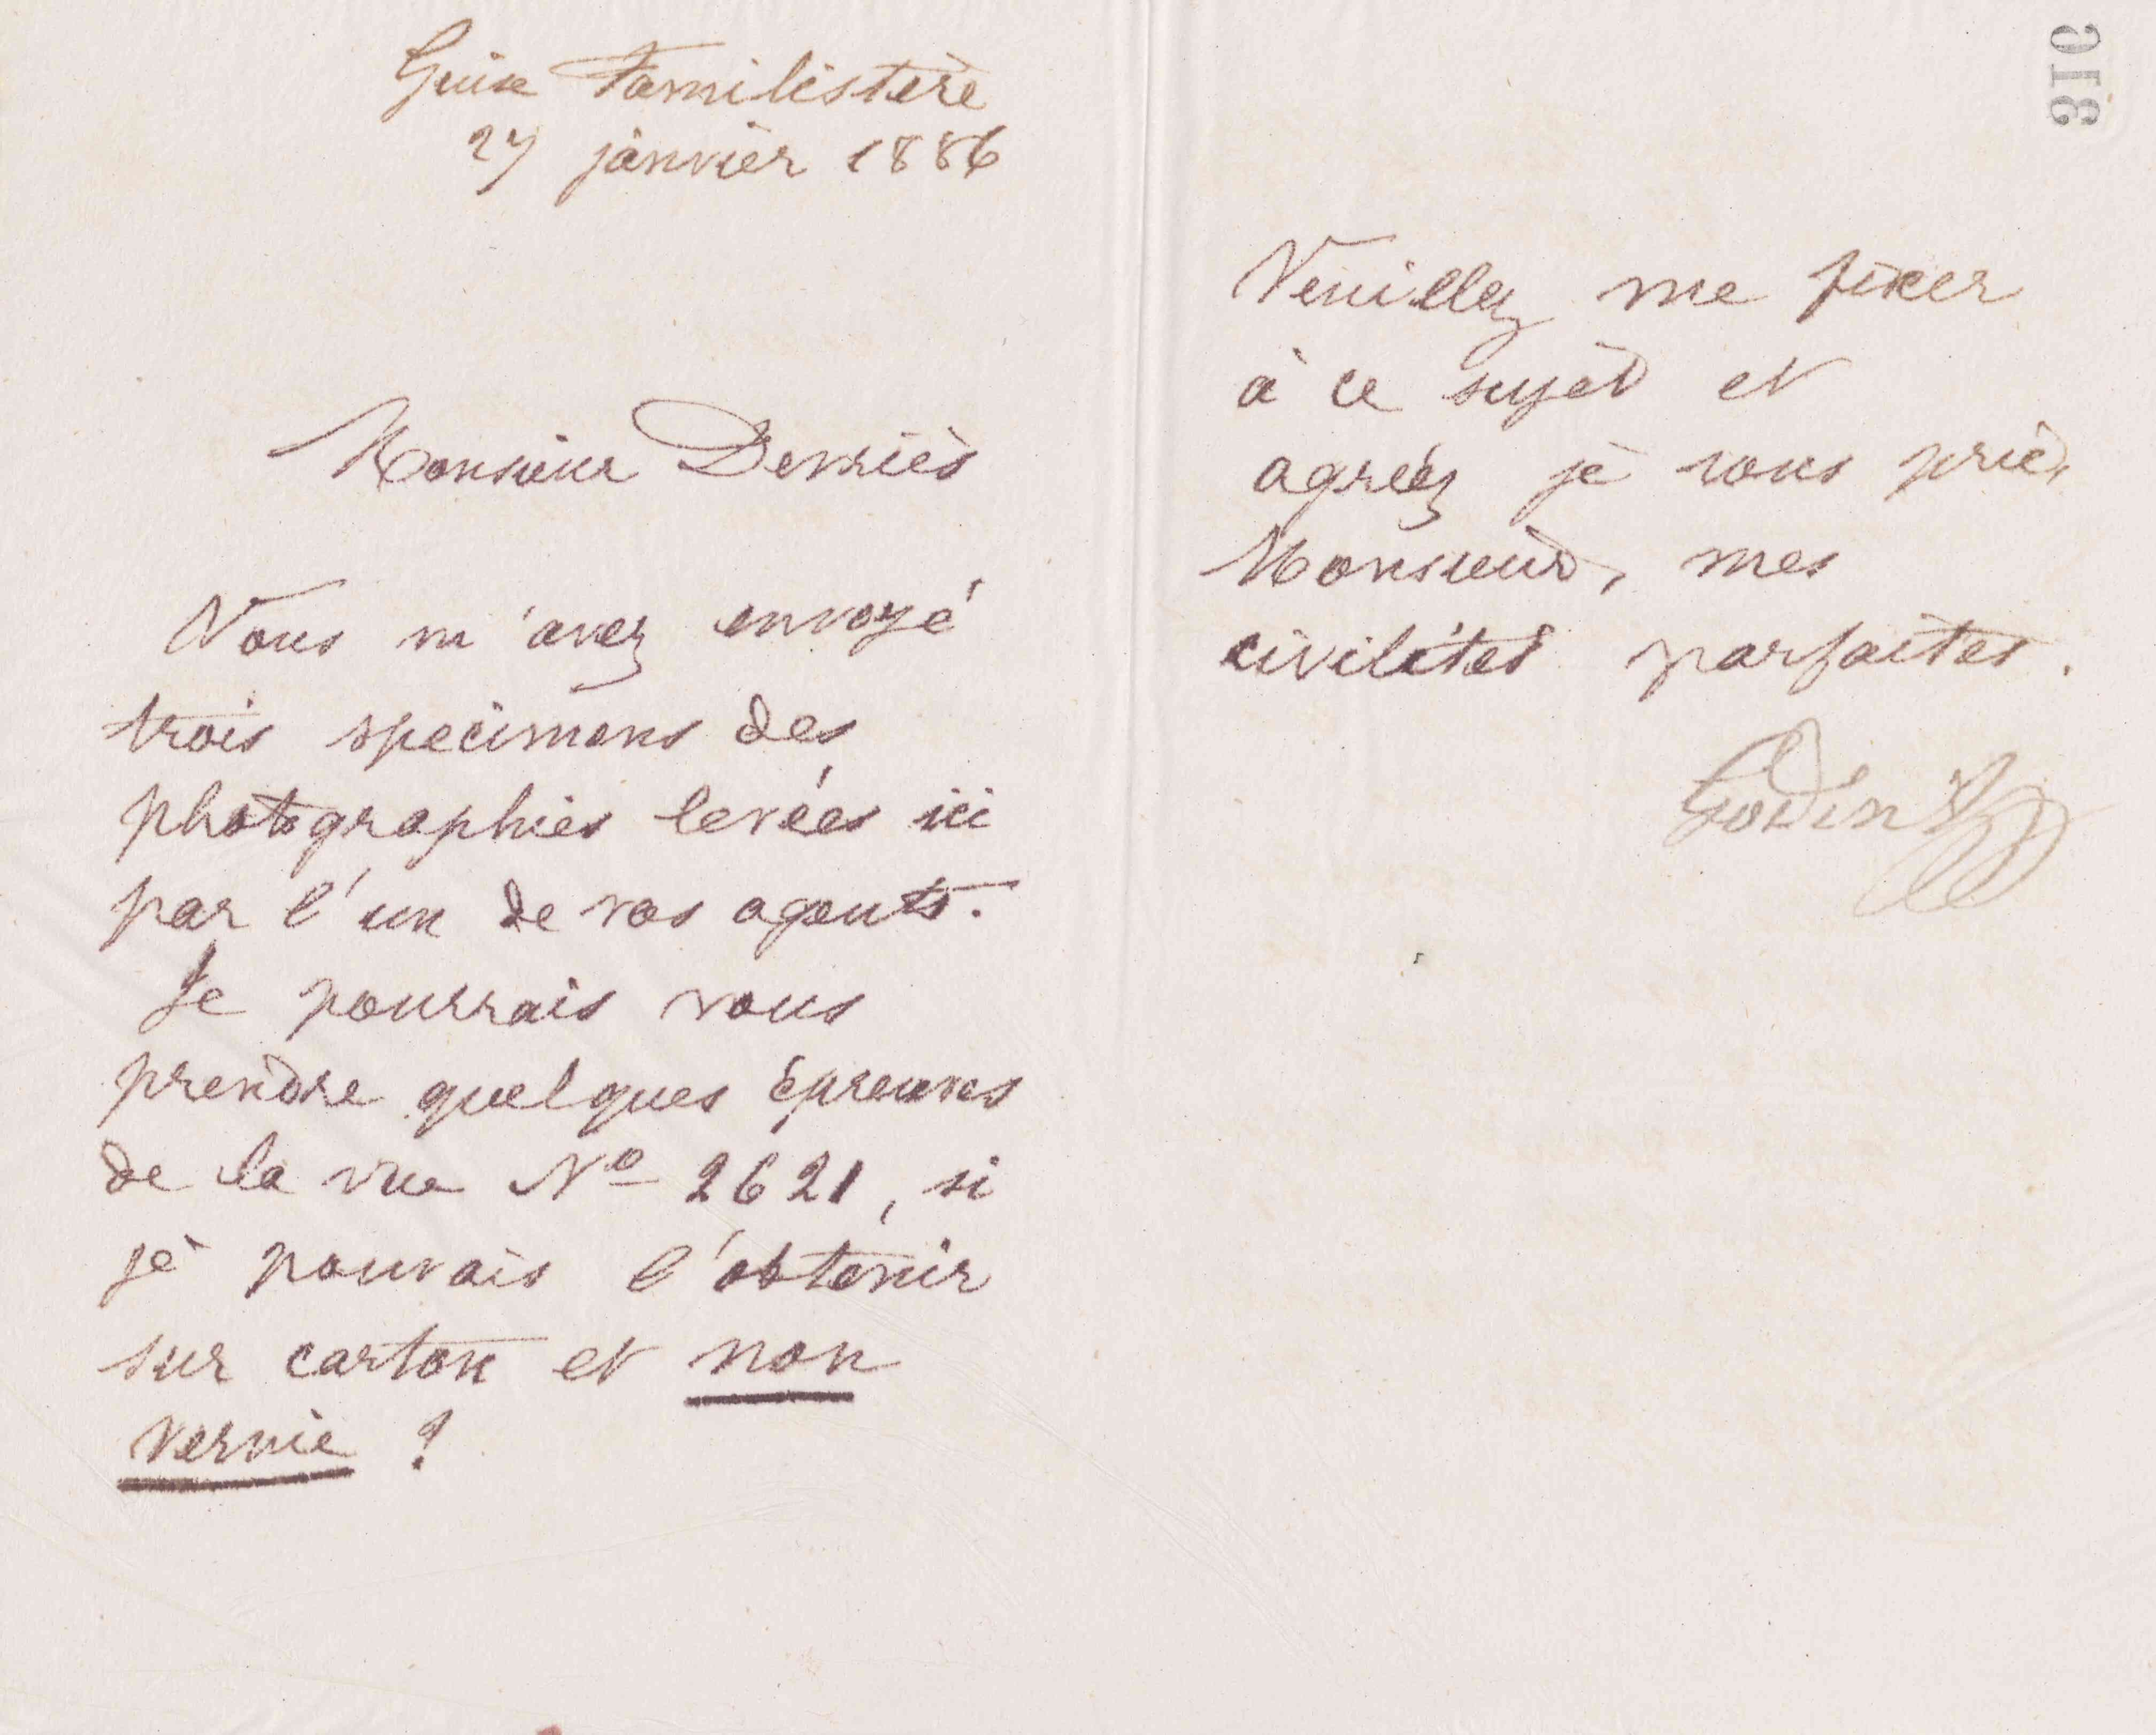 Guise Familistère
27 janvier 1886
Monsieur Devriès
Vous m'avez envoyé
trois specimens des
photographies levées ici
par l'un de vos agents.
Je pourrais vous
prendre quelques épreuves
de la vue No 2621, si
je pouvais l'obtenir
sur carton et non
vernie ?
316
Veuillez me fixer
à ce sujet et
agréez je vous prie,
Monsieur, mes
civilités parfaites.
Godin